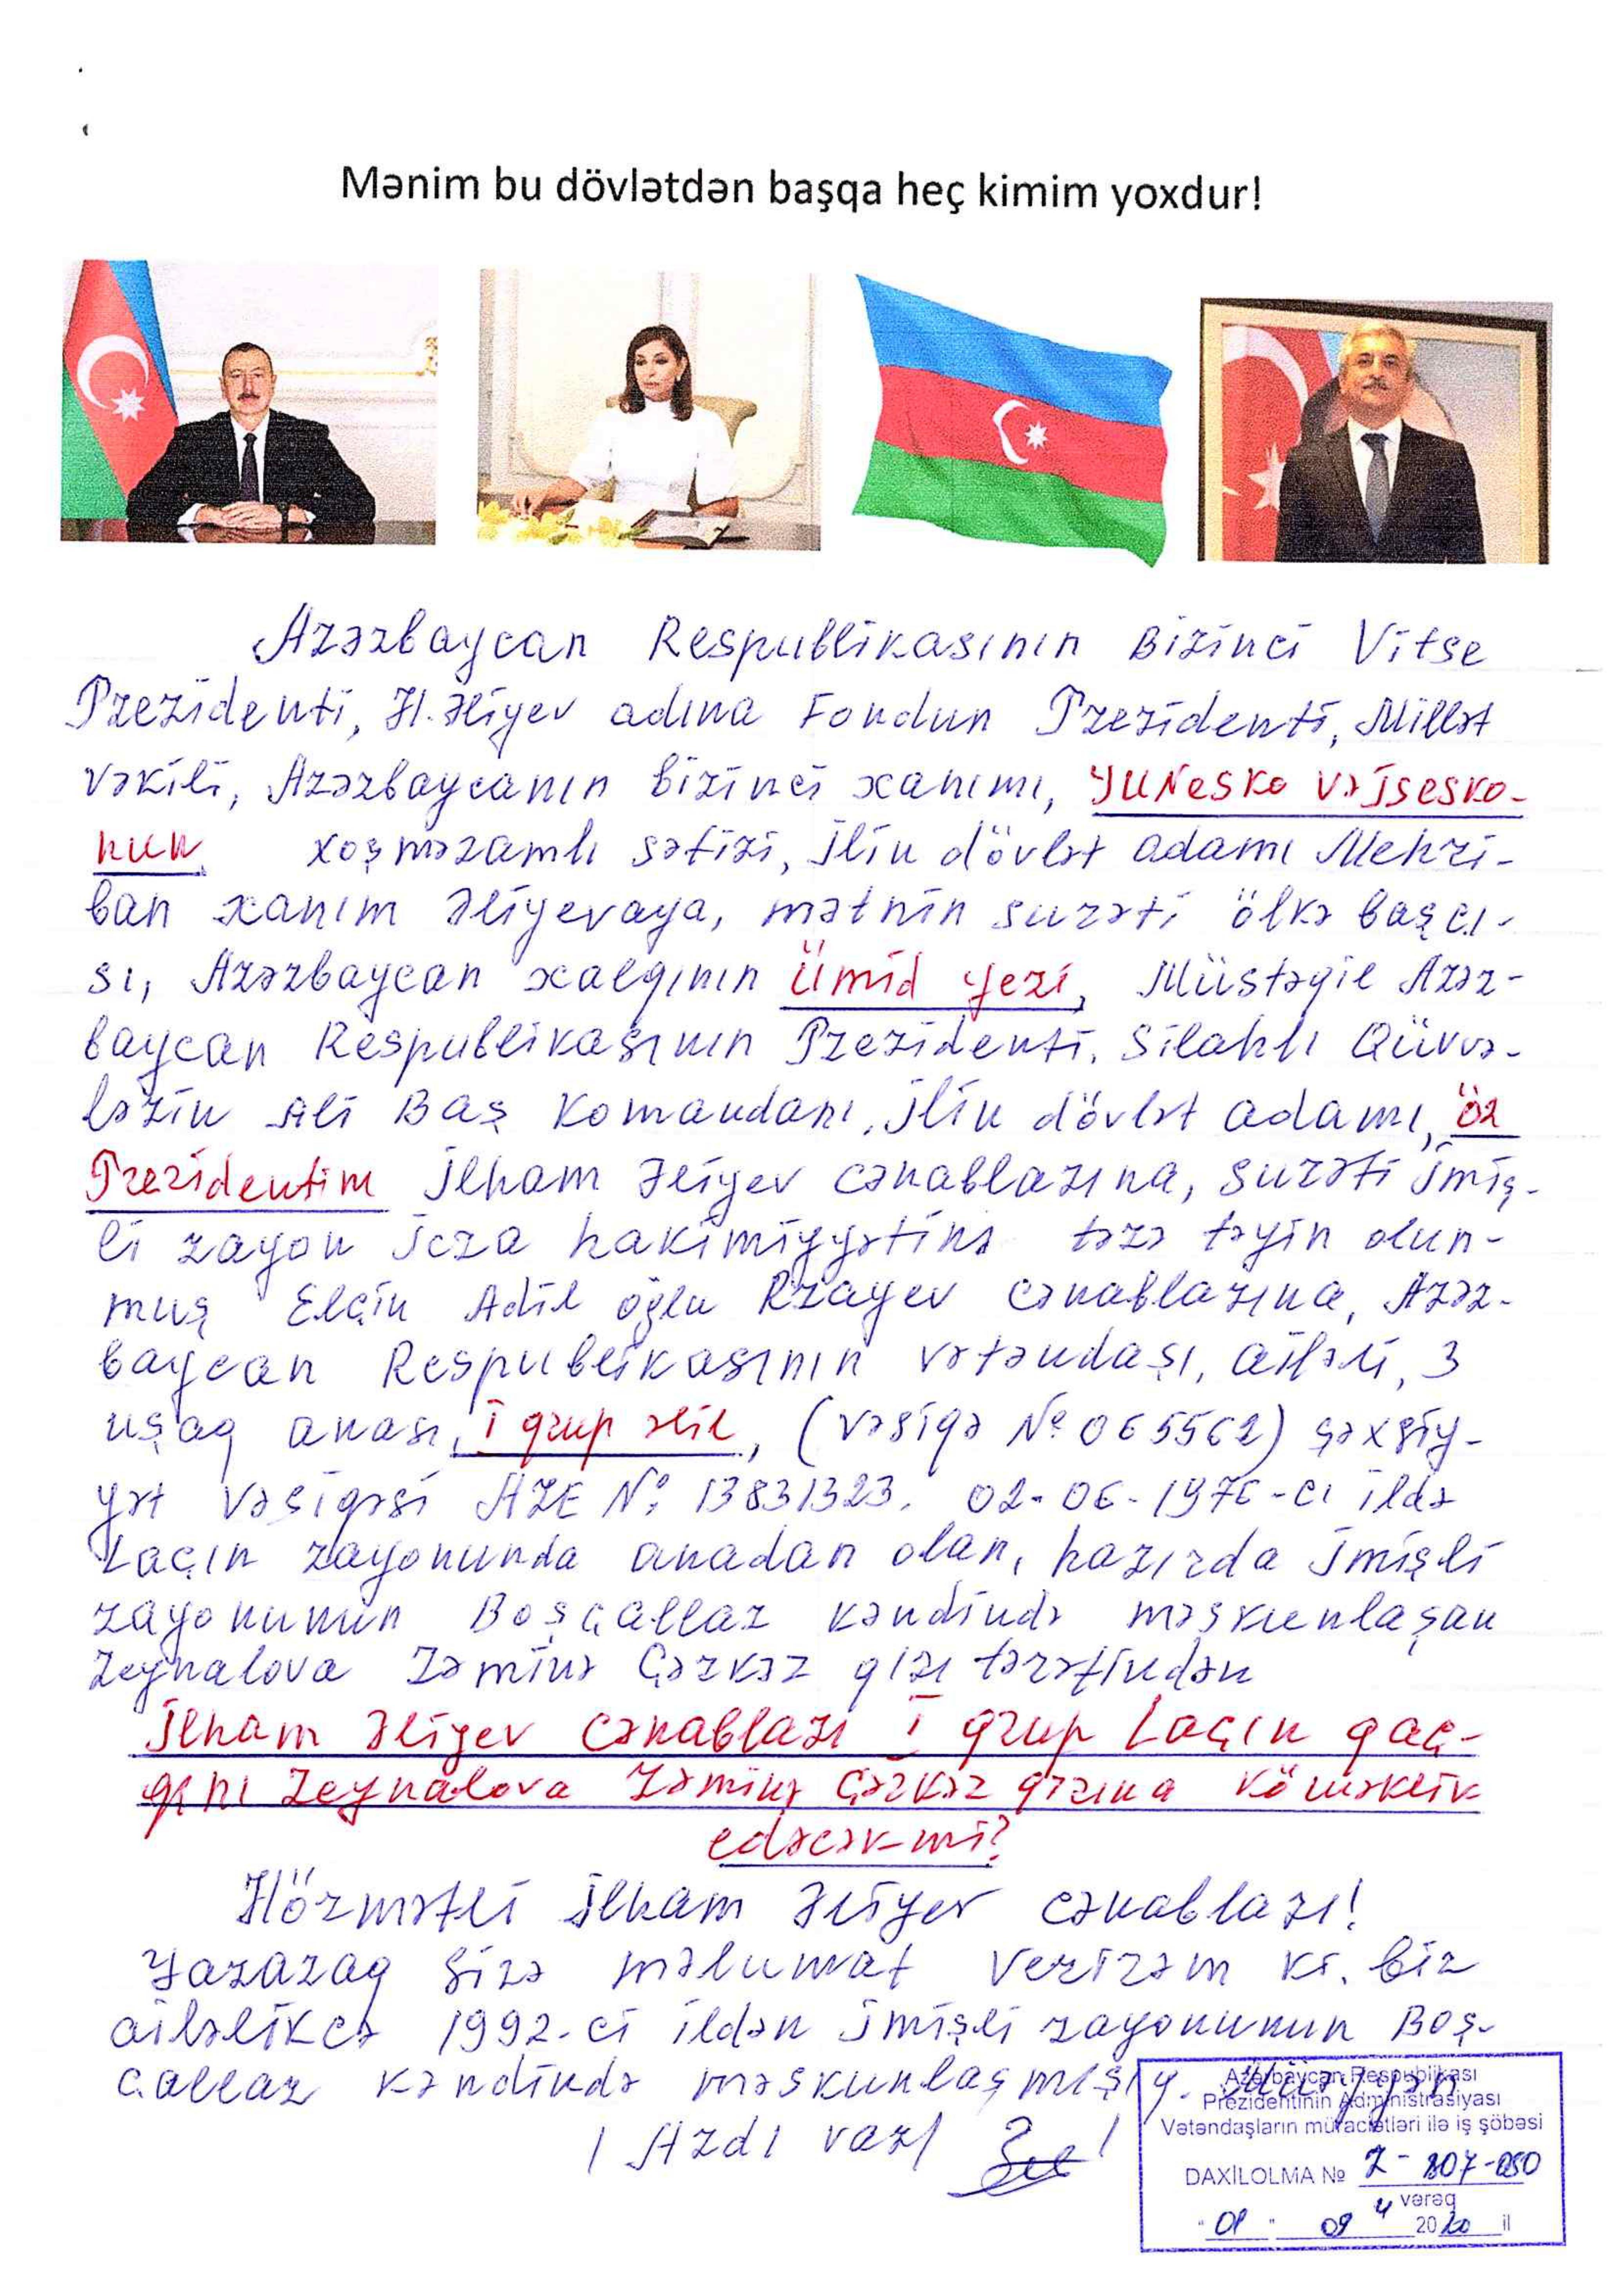 Mənim bu dövlətdən başqa heç kimim yoxdur!
Azərbaycan Respublikasının Birinci Vitse
Prezidenti, H. Əliyev adına Fondun Prezidenti, Millət
vəkili, Azərbaycanın birinci xanımı, YUNesko və İsesko-
nun xoşməramlı səfiri, ilin dövlət adamı Mehri-
ban xanım Əliyevaya, mətnin surəti ölkə başçı-
sı, Azərbaycan xalqının Ümid yeri, Müstəqil Azər-
baycan Respublikasının Prezidenti, Silahlı Qüvvə-
lərin Ali Baş Komandanı, ilin dövlət adamı, öz
Prezidentim İlham Əliyev cənablarına, surəti İmiş-
li rayon icra hakimiyyətinə təzə təyin olun-
muş Elçin Adil oğlu Rzayev cənablarına, Azər-
baycan Respublikasının vətəndaşı, ailəli, 3
uşaq anası, I qrup əlil, (vəsiqə № 065562) şəxsiy-
yət vəsiqəsi AZE № 13831323. 02-06-1976-cı ildə
Laçın rayonunda anadan olan, hazırda İmişli
rayonunun Boşçallar kəndində məskunlaşan
Zeynalova Zəminə Çərkəz qızı tərəfindən
İlham Əliyev cənabları I qrup Laçın qaç-
qını Zeynalova Zəminə Çərkəz qızına köməklik
edəcək-mi?
Hörmətli İlham Əliyev cənabları!
Yazaraq Sizə məlumat verirəm ki, biz
ailəlikcə 1992-ci ildən İmişli rayonunun Boş-
çallar kəndində məskunlaşmışıq. Müəyyən
/ Ardı var /
Azərbaycan Respublikası
Prezidentinin Administrasiyası
Vətəndaşların müraciətləri ilə iş şöbəsi
DAXİLOLMA № Z-807-050
4 vərəq
"01" 09 2020 il